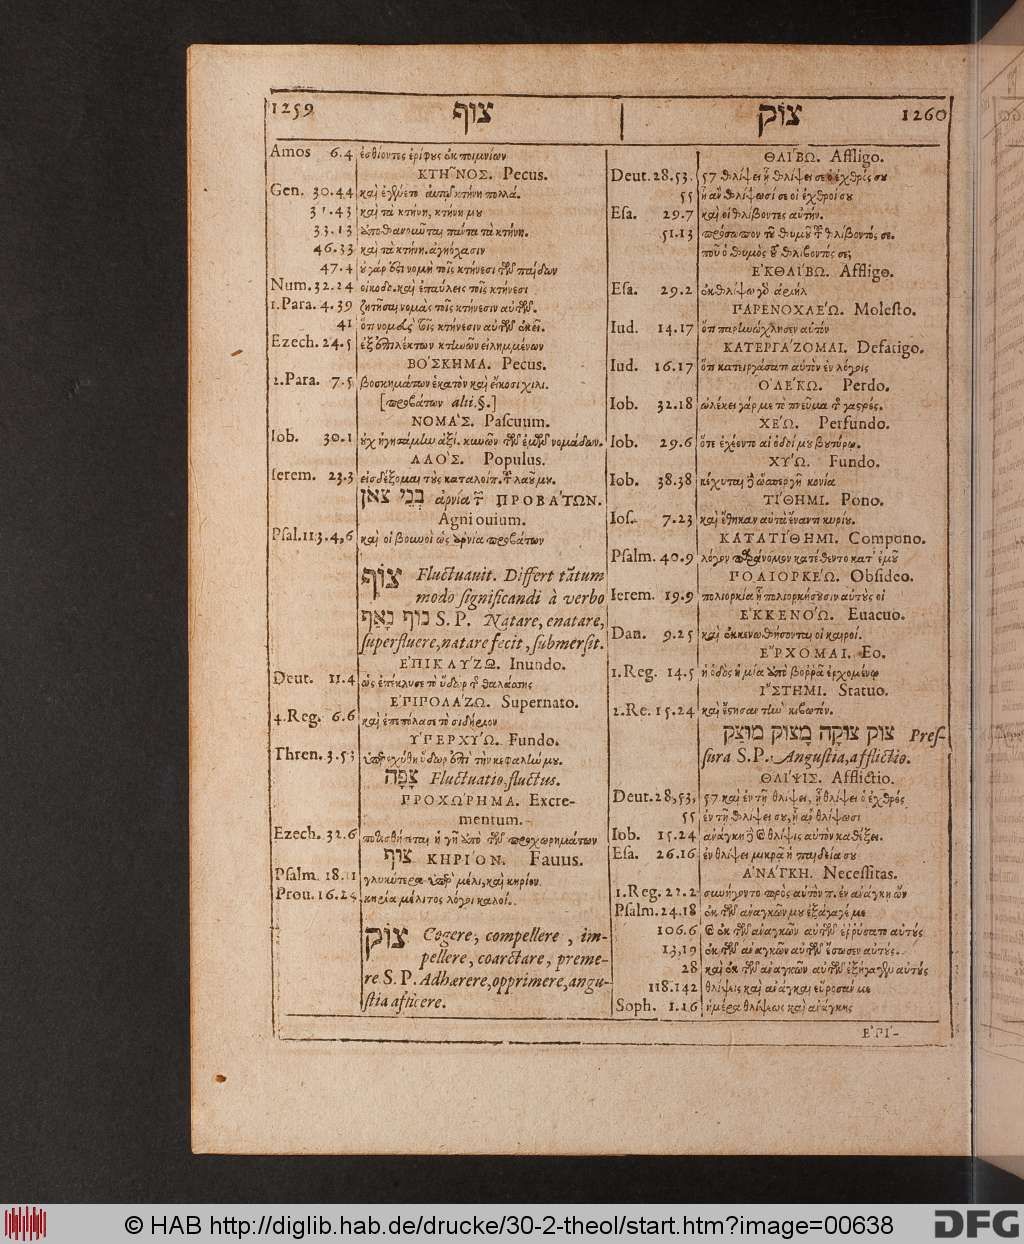 1259 צוף צוק 1260
Amos 6.4 ἐσθίοντες ἐρίφους ἐκ ποιμνίων
ΚΤΗ͂ΝΟΣ. Pecus.
Gen. 30.44
31.43 καὶ τὰ κτήνη, κτήνη μου
33.13 πάντα τὰ κτήνη.
46.33 καὶ τὰ κτήνη.
47.4 νομὴ τοῖς κτήνεσι τῶν παίδων
Num. 32.24 καὶ ἐπαύλεις τοῖς κτήνεσι
1.Para. 4.39 ζητῆσαι νομὰς τοῖς κτήνεσιν αὐτῶν.
41
Ezech. 24.5 κτηνῶν εἰλημμένων
ΒΟΣΚΗΜΑ. Pecus.
2.Para. 7.5 βοσκημάτων ἑκατὸν καὶ εἴκοσι χιλι.
[προβάτων alii.§.]
ΝΟΜΑ'Σ. Pascuum.
Iob. 30.1
ΛΑΟ'Σ. Populus.
Ierem. 23.3
בְּנֵי צֹאן ἀρνία τῶν ΠΡΟΒΑ'ΤΩΝ.
Agni ouium.
Psal. 113.4,6 καὶ οἱ βουνοὶ ὡς ἀρνία προβάτων
צוֹף Fluctuauit. Differt tātum
modo significandi à verbo
S.P. Natare, enatare,
superfluere, natare fecit, submersit.
ἘΠΙΚΛΥ'ΖΩ. Inundo.
Deut. 11.4 ὡς ἐπέκλυσε τὸ ὕδωρ τῆς θαλάσσης
Supernato.
4.Reg. 6.6 καὶ ἐπεπόλασε τὸ σιδήριον
Fundo.
Thren. 3.53 ὑπερεχύθη ὕδωρ ἐπὶ τὴν κεφαλήν μου.
צָפָה Fluctuatio, fluctus.
ΠΡΟΧΩ'ΡΗΜΑ. Excre-
mentum.
Ezech. 32.6 ποτισθήσεται ἡ γῆ ἀπὸ τῶν προχωρημάτων
צוף ΚΗΡΙ'ΟΝ. Fauus.
Psalm. 18.11 γλυκύτερα ὑπὲρ μέλι, καὶ κηρίον
Prou. 16.24 κηρία μέλιτος λόγοι καλοί.
צוֹק Cogere, compellere, im-
pellere, coarctare, preme-
re S.P. Adhærere, opprimere, angu-
stia afficere.
ΘΛΙ'ΒΩ. Affligo.
Deut. 28.53.
55
Esa. 29.7 καὶ οἱ θλίβοντες αὐτήν.
51.13 πρόσωπον τοῦ θυμοῦ τοῦ θλίβοντός σε.
ποῦ ὁ θυμὸς τοῦ θλίβοντός σε;
ἘΚΘΛΙ'ΒΩ. Affligo.
Esa. 29.2 ἐκθλίψω γὰρ ἀριήλ
ΠΑΡΕΝΟΧΛΕ'Ω. Molesto.
Iud. 14.17 ὅτι παρηνώχλησεν αὐτόν
ΚΑΤΕΡΓΑ'ΖΟΜΑΙ. Defatigo.
Iud. 16.17 ἐν λόγοις
ὈΛΕ'ΚΩ. Perdo.
Iob. 32.18 ὀλέκει γάρ με τὸ πνεῦμα τῆς γαστρός.
ΧΕ'Ω. Perfundo.
Iob. 29.6 ὅτε ἐχέοντο αἱ ὁδοί μου βουτύρῳ.
ΧΥ'Ω. Fundo.
Iob. 38.38 κέχυται δὲ ὥσπερ γῆ κονία
ΤΙ'ΘΗΜΙ. Pono.
Ios. 7.23 καὶ ἔθηκαν αὐτὰ ἔναντι κυρίου.
ΚΑΤΑΤΙ'ΘΗΜΙ. Compono.
Psalm. 40.9 λόγον παράνομον κατέθεντο κατ' ἐμοῦ
ΠΟΛΙΟΡΚΕ'Ω. Obsideo.
Ierem. 19.9 πολιορκία ᾗ πολιορκήσουσιν αὐτοὺς οἱ
ἘΚΚΕΝΟ'Ω. Euacuo.
Dan. 9.25 καὶ ἐκκενωθήσονται οἱ καιροί.
ἜΡΧΟΜΑΙ. Eo.
1.Reg. 14.5 ἡ ὁδὸς ἡ μία ἀπὸ βορρᾶ ἐρχομένῳ
ἽΣΤΗΜΙ. Statuo.
2.Re. 15.24 καὶ ἔστησαν τὴν κιβωτόν.
צוק צוקה מצוק מוצק Pres-
sura S.P. Angustia, afflictio.
ΘΛΙ͂ΨΙΣ. Afflictio.
Deut. 28,53, 57 καὶ ἐν τῇ θλίψει, ᾗ θλίψει ὁ ἐχθρός
55 ἐν τῇ θλίψει σου, ᾗ ἂν θλίψωσι
Iob. 15.24 ἀνάγκη δὲ καὶ θλίψις αὐτὸν καθέξει.
Esa. 26.16 ἐν θλίψει μικρᾷ ἡ παιδεία σου
ἈΝΑ'ΓΚΗ. Necessitas.
1.Reg. 22.2
Psalm. 24.18 ἐκ τῶν ἀναγκῶν μου ἐξάγαγέ με
106.6 καὶ ἐκ τῶν ἀναγκῶν αὐτῶν ἐρρύσατο αὐτούς
13,19 ἐκ τῶν ἀναγκῶν αὐτῶν ἔσωσεν αὐτούς.
28 καὶ ἐκ τῶν ἀναγκῶν αὐτῶν ἐξήγαγεν αὐτούς
118.142 θλίψεις καὶ ἀνάγκαι εὕροσάν με
Soph. 1.16 ἡμέρα θλίψεως καὶ ἀνάγκης
ἘΡΙ'-
© HAB http://diglib.hab.de/drucke/30-2-theol/start.htm?image=00638
DFG